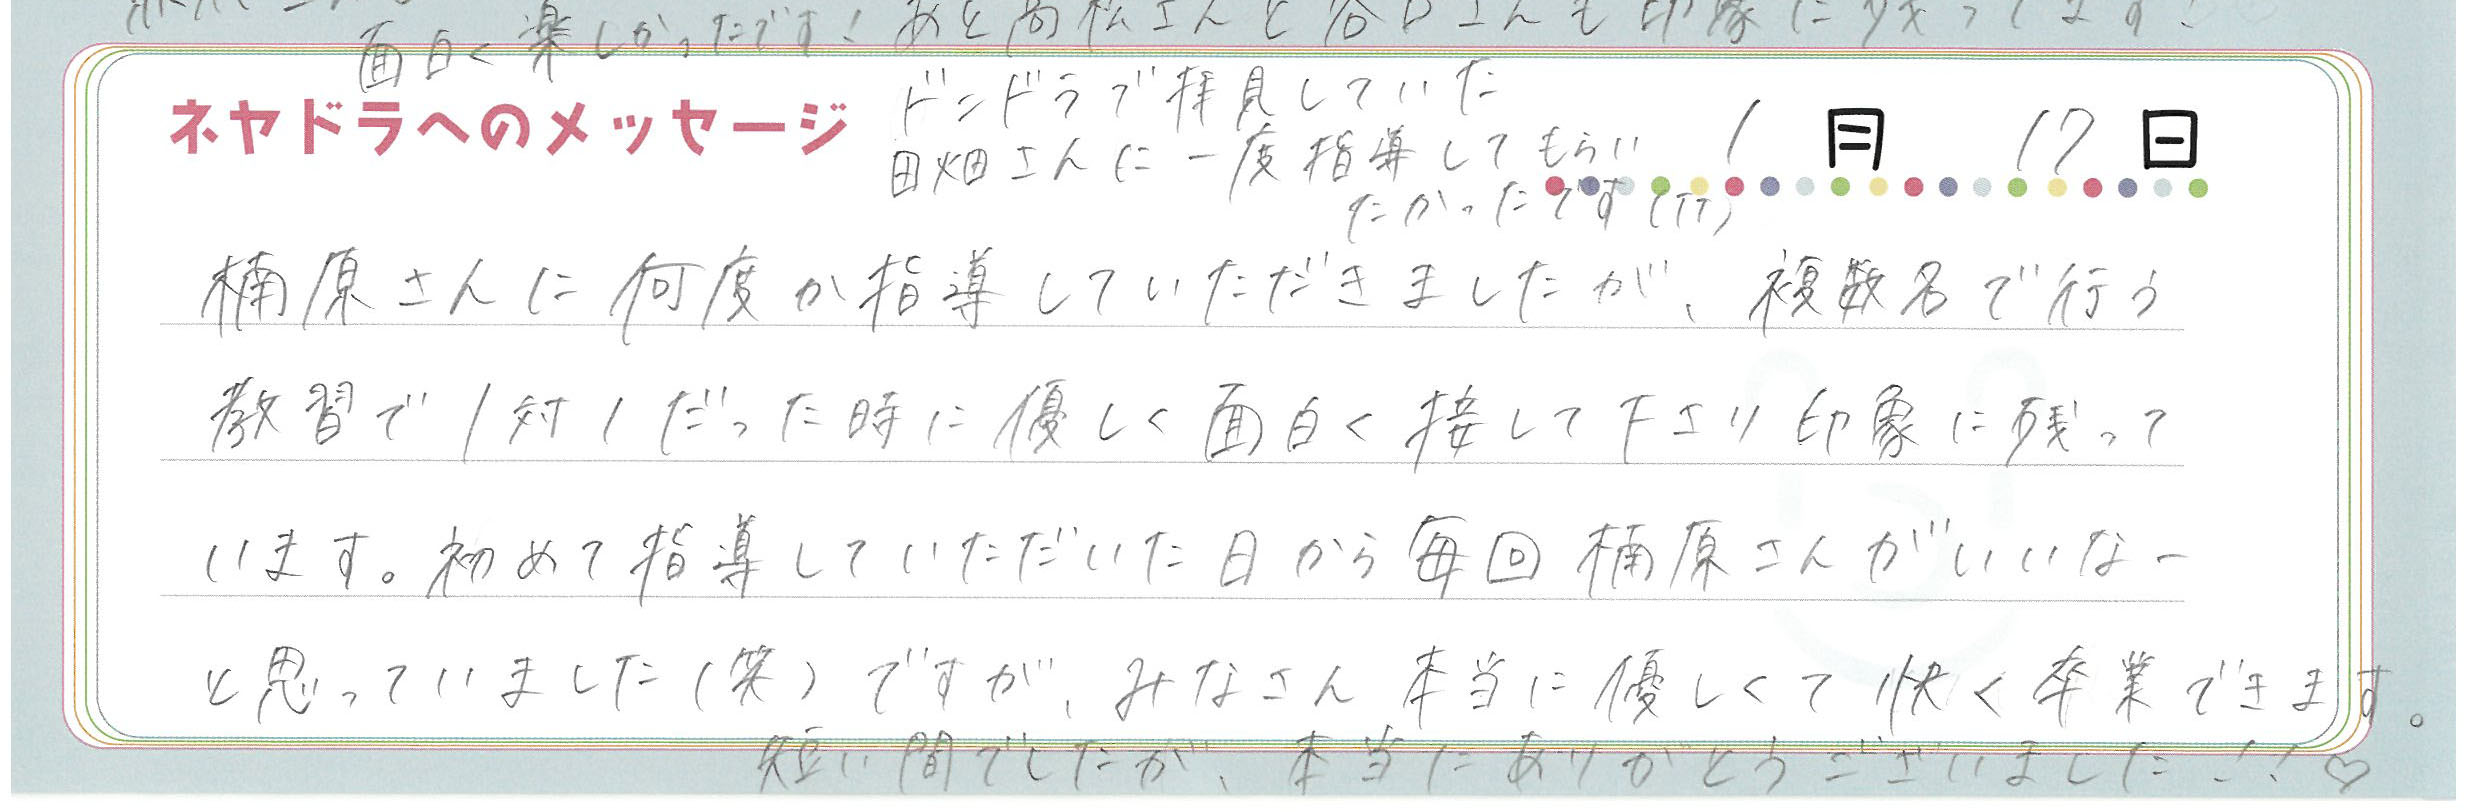 面白く楽しかったです!あと高松さんと谷口さんも印象に残ってます!
ネヤドラへのメッセージ
ドンドラで拝見していた
田畑さんに一度指導してもらい
たかったです(TT)
1月17日
楠原さんに何度か指導していただきましたが、複数名で行う
教習で1対1だった時に優しく面白く接して下さり印象に残って
います。初めて指導していただいた日から毎回楠原さんがいいなー
と思っていました(笑)ですが、みなさん本当に優しくて快く卒業できます。
短い間でしたが、本当にありがとうございました!!♡